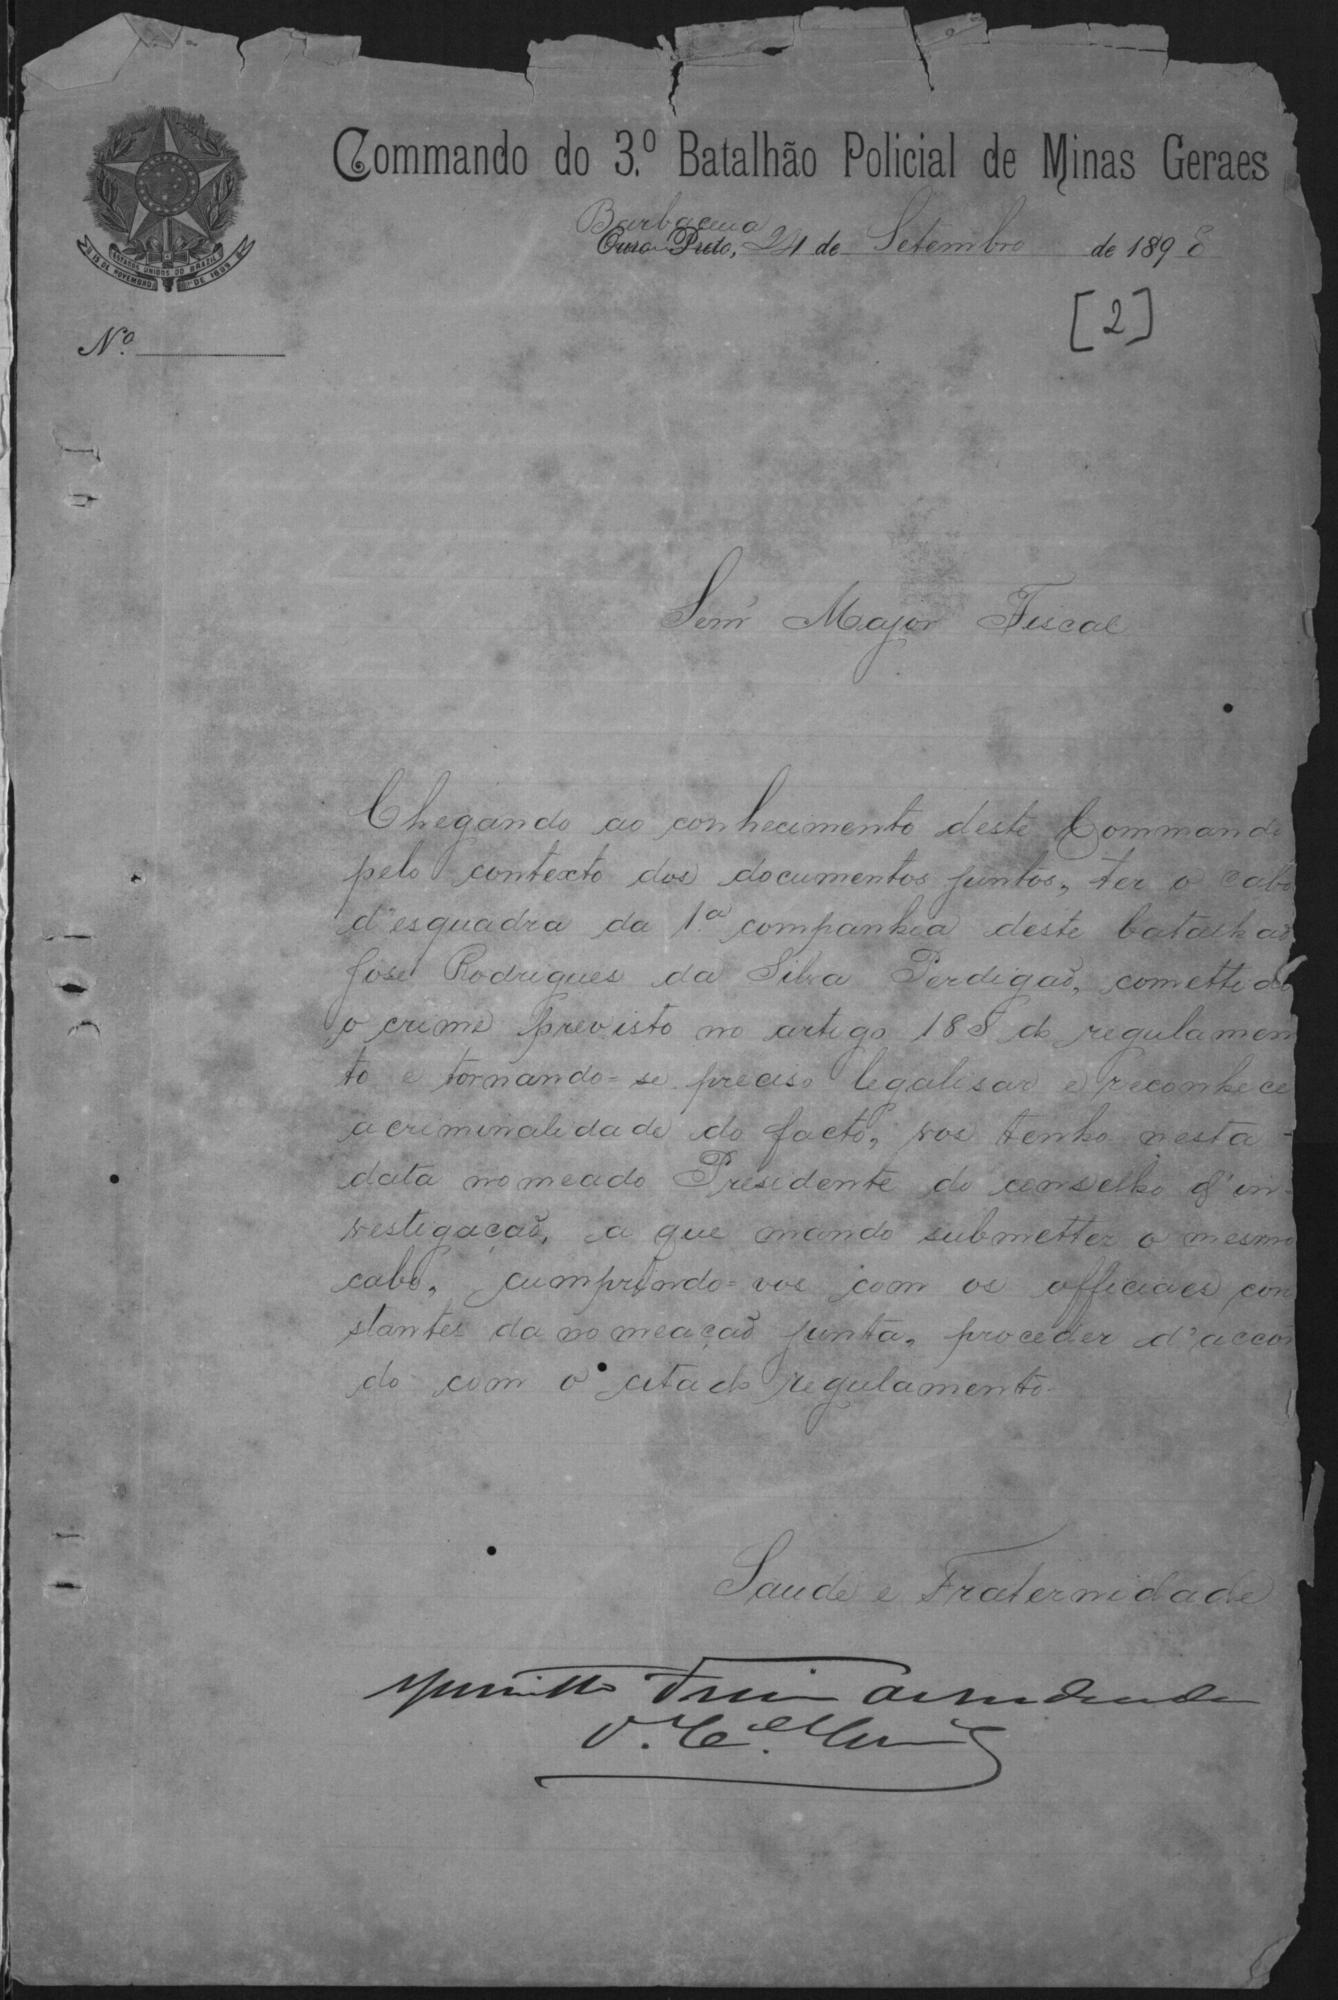 Commando do 3.º Batalhão Policial de Minas Geraes
Barbacena
Ouro Preto, 24 de Setembro de 1898
ESTADOS UNIDOS DO BRAZIL
15 DE NOVEMBRO DE 1889
[2]
N.º
Senr Major Fiscal
Chegando ao conhecimento deste Commando
pelo contexto dos documentos juntos, ter o cabo
d'esquadra da 1.ª companhia deste batalhão
José Rodrigues da Silva Perdigão, comettido
o crime previsto no artigo 188 do regulamen
to e tornando-se preciso legalisar e reconhece
a criminalidade do facto, vos tenho nesta
data nomeado Presidente do conselho d'in-
vestigação, a que mando submetter o mesmo
cabo, cumprindo-vos com os officiaes con
stantes da nomeação junta, proceder d'accor
do com o citado regulamento.
Saude e Fraternidade